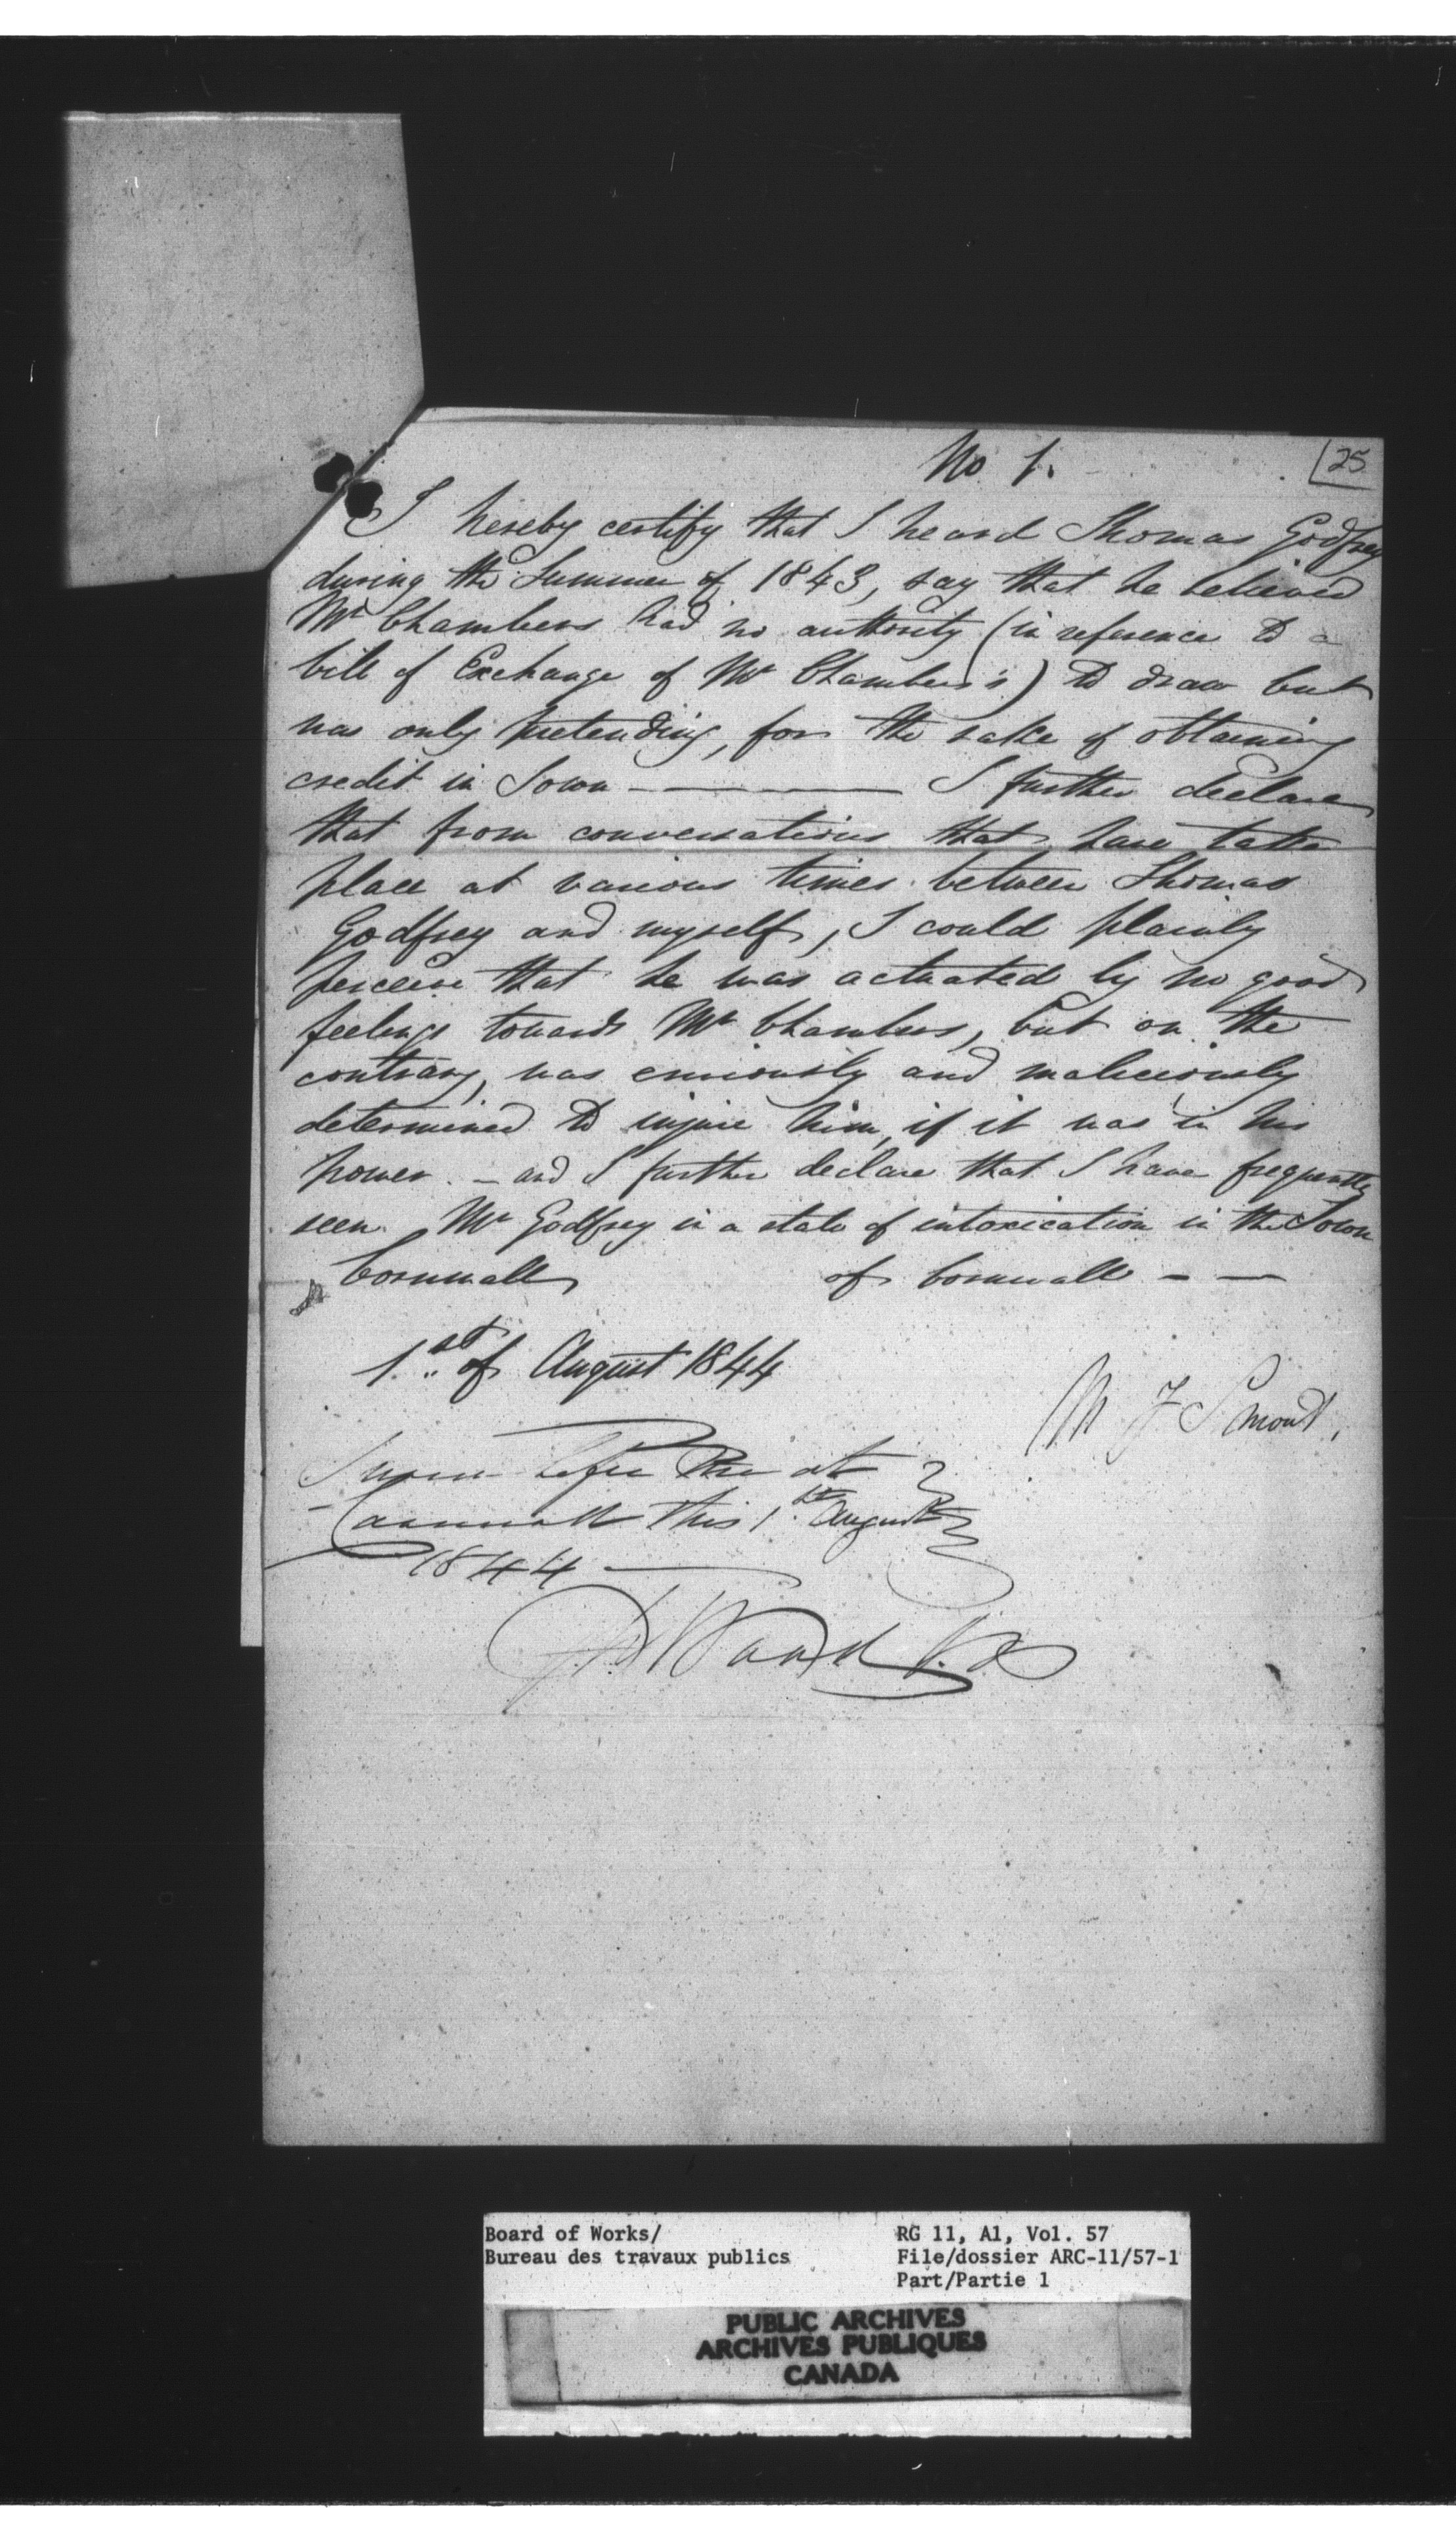 No 1.
25
I hereby certify that I heard Thomas Godfrey
during the Summer of 1843, say that he believed
Mr Chambers had no authority (in reference to a
bill of Exchange of Mr Chambers's) to draw but
was only pretending, for the sake of obtaining
credit in Town - ——— I further declare
that from conversations that have taken
place at various times between Thomas
Godfrey and myself, I could plainly
perceive that he was actuated by no good
feelings towards Mr Chambers, but on the
contrary, was enviously and maliciously
determined to injure him, if it was in his
power. - and I further declare that I have frequently
seen Mr Godfrey in a state of intoxication in the Town
Cornwall of Cornwall - —
1st of August 1844
M F
Sworn before me at
Cornwall this 1st August
1844 —
Board of Works/
Bureau des travaux publics
RG 11, A1, Vol. 57
File/dossier ARC-11/57-1
Part/Partie 1
PUBLIC ARCHIVES
ARCHIVES PUBLIQUES
CANADA